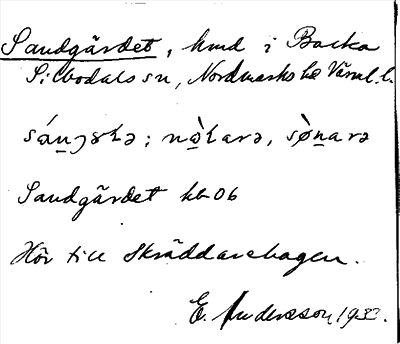 Sandgärdet, hmd i Backa
Silbodals sn, Nordmarks hd Värml. l.
Sandgärdet hb 06
Hör till Skräddarehagen.
E. Andersson 1933.